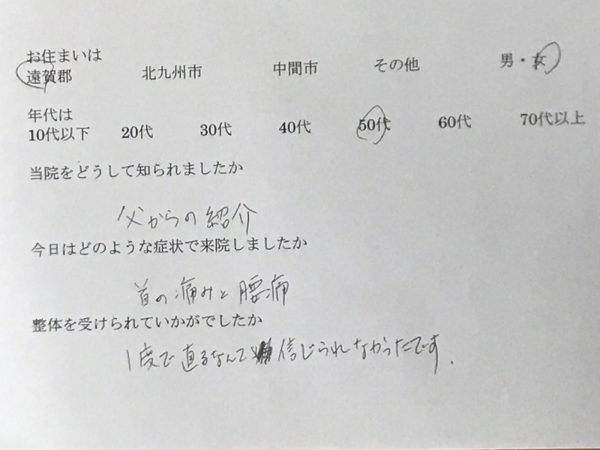 お住まいは
遠賀郡 北九州市 中間市 その他 男・女
年代は
10代以下 20代 30代 40代 50代 60代 70代以上
当院をどうして知られましたか
父からの紹介
今日はどのような症状で来院しましたか
首の痛みと腰痛
整体を受けられていかがでしたか
1度で直るなんて信じられなかったです.